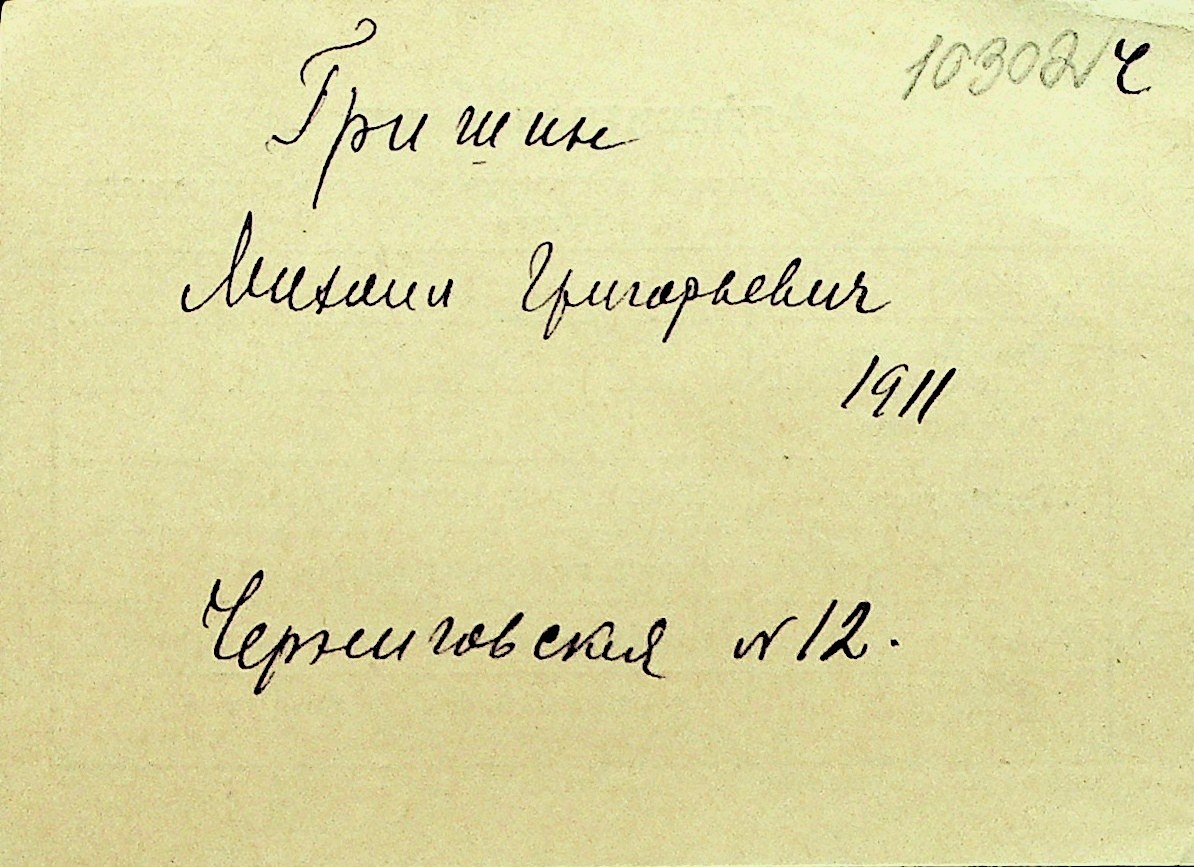 10302 Ч
Гришин
Михаил Григорьевич
1911
Черниговская N 12.